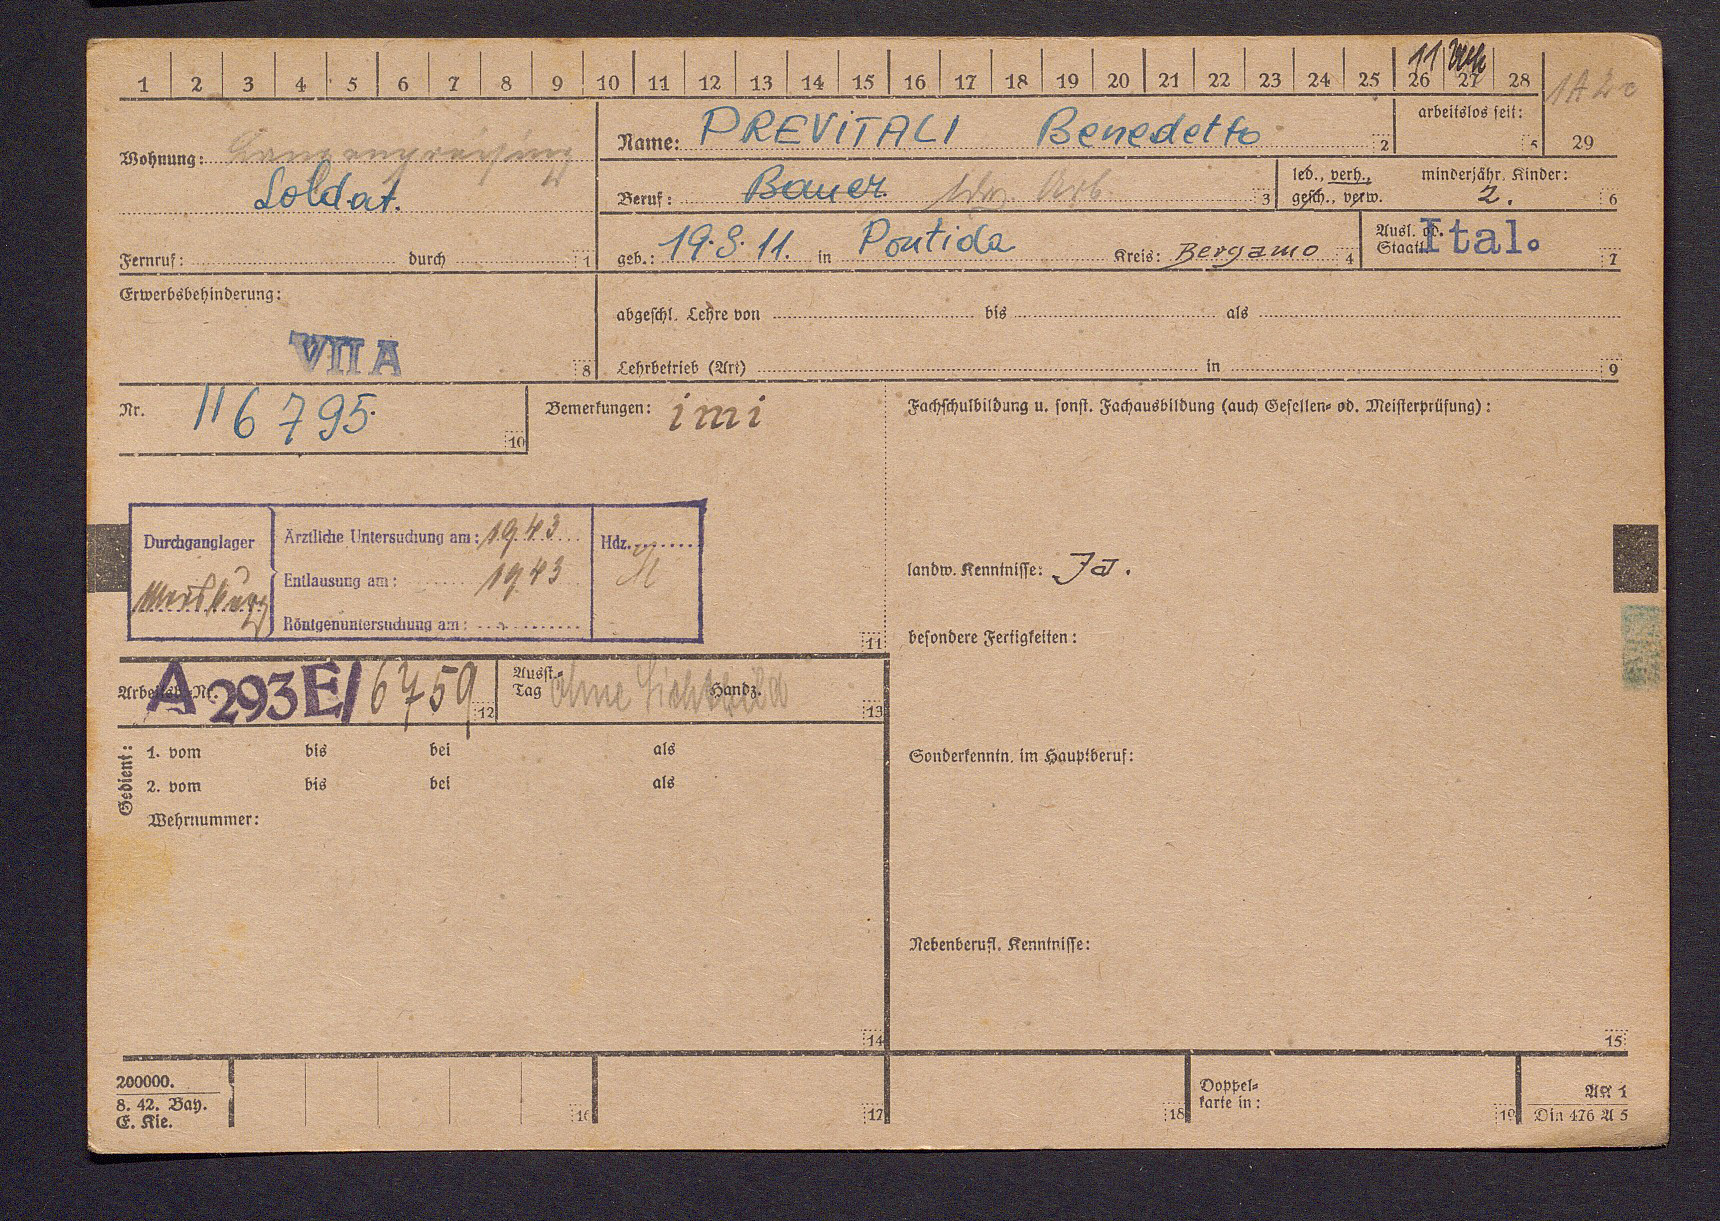 1 2 3 4 5 6 7 8 9 10 11 12 13 14 15 16 17 18 19 20 21 22 23 24 25 26 27 28
11
Wohnung:
Soldat.
Name: PREVITALI Benedetto 2
arbeitslos seit: 5
29
Beruf: Bauer 3
led., verh., gesch., verw.
minderjähr. Kinder: 2. 6
Fernruf: durch 1
geb.: 19.3.11. in Pontida Kreis: Bergamo 4
Ausl. od. Staatl. Ital. 7
Erwerbsbehinderung:
VII A 8
abgeschl. Lehre von bis als
Lehrbetrieb (Art) in 9
Nr. 116795. 10
Bemerkungen: imi
Fachschulbildung u. sonst. Fachausbildung (auch Gesellen- od. Meisterprüfung):
Durchganglager
Ärztliche Untersuchung am: 19.4.3
Hdz.
Entlausung am: 19.43
Röntgenuntersuchung am:
11
landw. Kenntnisse: Ja.
besondere Fertigkeiten:
Arbeitsb.-Nr. A 293E/6759 12
Ausst.-Tag ohne Lichtbild Handz. 13
Gedient:
1. vom bis bei als
2. vom bis bei als
Wehrnummer:
Sonderkenntn. im Hauptberuf:
Nebenberufl. Kenntnisse:
14
15
200000.
8. 42. Bay.
E. Kie.
16
17
18
Doppel-
karte in: 19
AK 1
Din 476 A 5